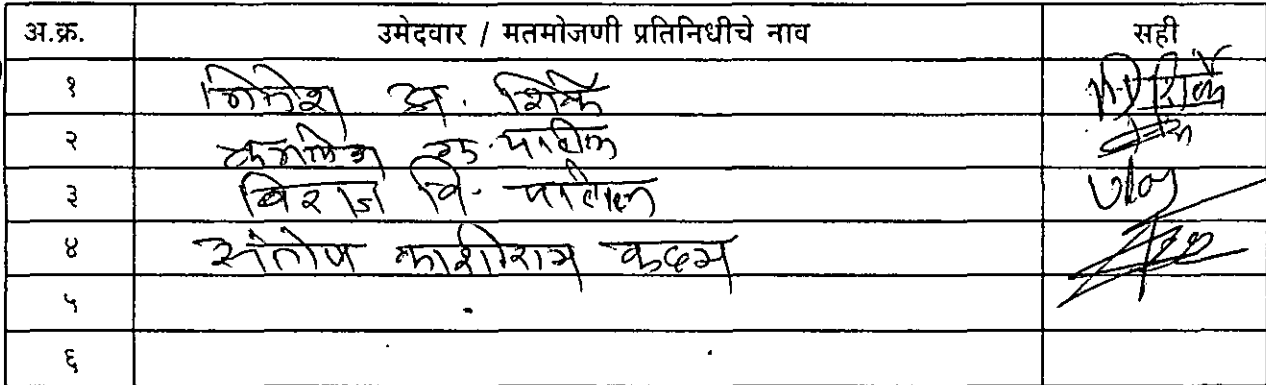 अ.क्र. उमेदवार / मतमोजणी प्रतिनिधीचे नाव सही
१ अ. शिर्के शिर्के
२ पाटील
३ विराज वि. पाटील
४ संतोष काशीराम कदम
५
६